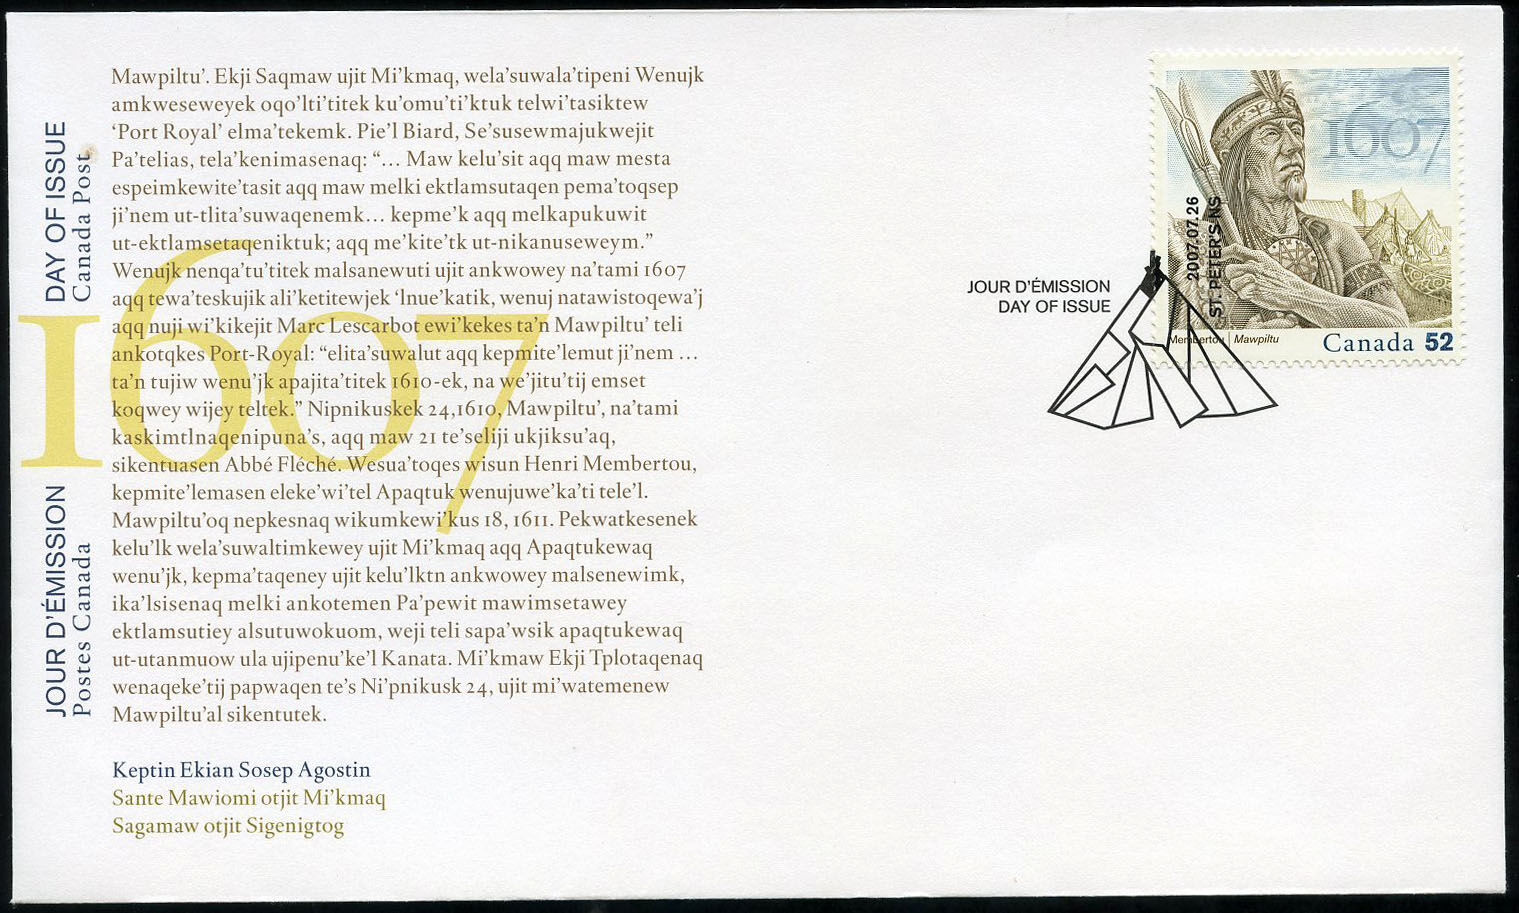 DAY OF ISSUE
Canada Post
JOUR D'ÉMISSION
Postes Canada
1607
Mawpiltu’. Ekji Saqmaw ujit Mi’kmaq, wela’suwala’tipeni Wenujk
amkweseweyek oqo’lti’titek ku’omu’ti’ktuk telwi’tasiktew
‘Port Royal’ elma’tekemk. Pie’l Biard, Se’susewmajukwejit
Pa’telias, tela’kenimasenaq: “… Maw kelu’sit aqq maw mesta
espeimkewite’tasit aqq maw melki ektlamsutaqen pema’toqsep
ji’nem ut-tlita’suwaqenemk… kepme’k aqq melkapukuwit
ut-ektlamsetaqeniktuk; aqq me’kite’tk ut-nikanuseweym.”
Wenujk nenqa’tu’titek malsanewuti ujit ankwowey na’tami 1607
aqq tewa’teskujik ali’ketitewjek ‘lnue’katik, wenuj natawistoqewa’j
aqq nuji wi’kikejit Marc Lescarbot ewi’kekes ta’n Mawpiltu’ teli
ankotqkes Port-Royal: “elita’suwalut aqq kepmite’lemut ji’nem …
ta’n tujiw wenu’jk apajita’titek 1610-ek, na we’jitu’tij emset
koqwey wijey teltek.” Nipnikuskek 24,1610, Mawpiltu’, na’tami
kaskimtlnaqenipuna’s, aqq maw 21 te’seliji ukjiksu’aq,
sikentuasen Abbé Fléché. Wesua’toqes wisun Henri Membertou,
kepmite’lemasen eleke’wi’tel Apaqtuk wenujuwe’ka’ti tele’l.
Mawpiltu’oq nepkesnaq wikumkewi’kus 18, 1611. Pekwatkesenek
kelu’lk wela’suwaltimkewey ujit Mi’kmaq aqq Apaqtukewaq
wenu’jk, kepma’taqeney ujit kelu’lktn ankwowey malsenewimk,
ika’lsisenaq melki ankotemen Pa’pewit mawimsetawey
ektlamsutiey alsutuwokuom, weji teli sapa’wsik apaqtukewaq
ut-utanmuow ula ujipenu’ke’l Kanata. Mi’kmaw Ekji Tplotaqenaq
wenaqeke’tij papwaqen te’s Ni’pnikusk 24, ujit mi’watemenew
Mawpiltu’al sikentutek.
Keptin Ekian Sosep Agostin
Sante Mawiomi otjit Mi’kmaq
Sagamaw otjit Sigenigtog
JOUR D'ÉMISSION
DAY OF ISSUE
2007.07.26
ST. PETER'S NS
1607
Membertou | Mawpiltu
Canada 52